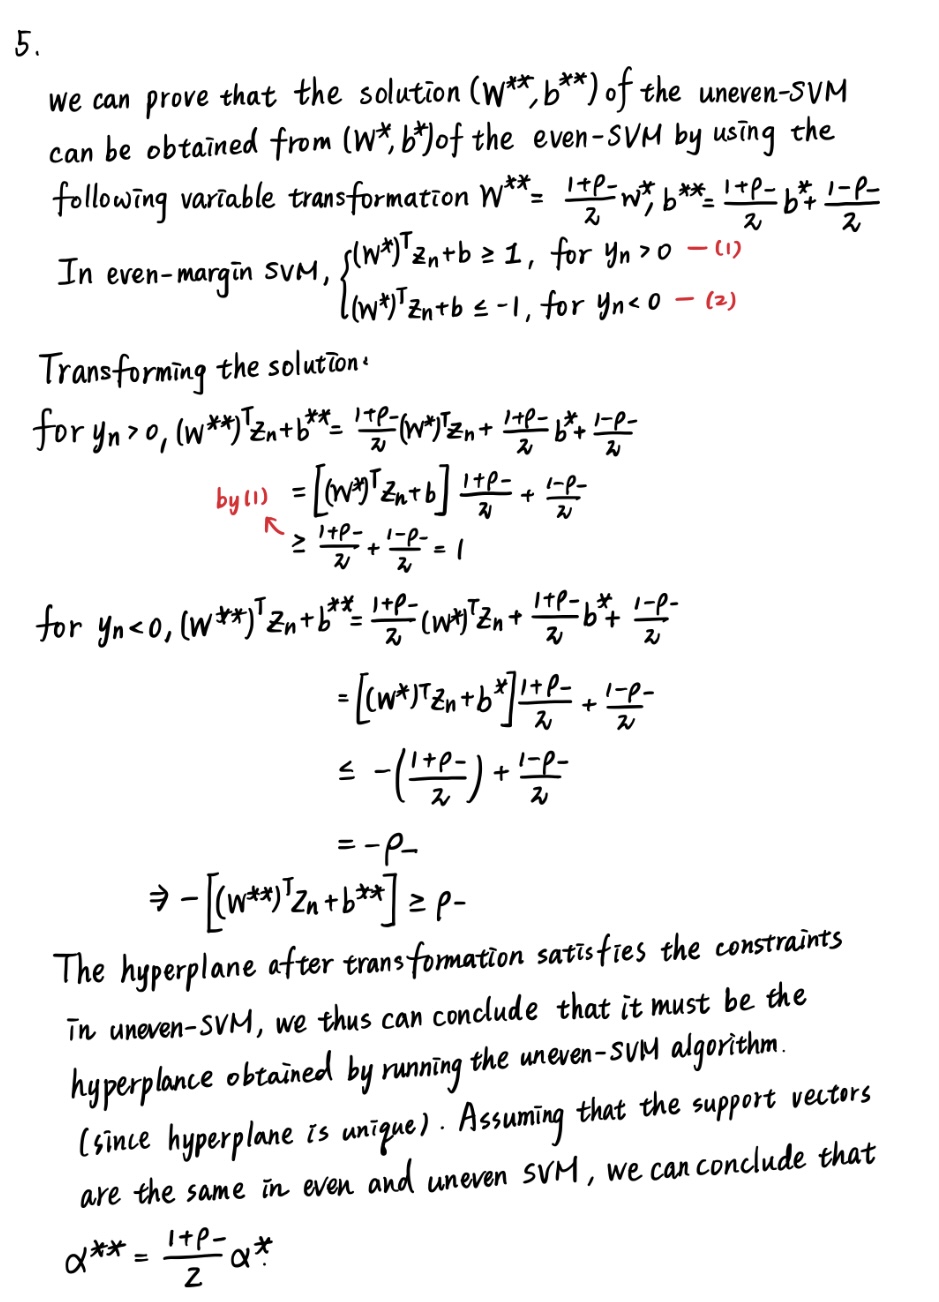 5.
we can prove that the solution (W**, b**) of the uneven-SVM
can be obtained from (W*, b*) of the even-SVM by using the
following variable transformation W** = \frac{1+ρ-}{2} w*, b** = \frac{1+ρ-}{2} b* + \frac{1-ρ-}{2}
In even-margin SVM, { (w*)ᵀzn + b ≥ 1, for yn > 0 — (1)
(w*)ᵀzn + b ≤ -1, for yn < 0 — (2)
Transforming the solution:
for yn > 0, (w**)ᵀzn + b** = \frac{1+ρ-}{2} (w*)ᵀzn + \frac{1+ρ-}{2} b* + \frac{1-ρ-}{2}
= [(w*)ᵀzn + b] \frac{1+ρ-}{2} + \frac{1-ρ-}{2}
by (1)
≥ \frac{1+ρ-}{2} + \frac{1-ρ-}{2} = 1
for yn < 0, (w**)ᵀzn + b** = \frac{1+ρ-}{2} (w*)ᵀzn + \frac{1+ρ-}{2} b* + \frac{1-ρ-}{2}
= [(w*)ᵀzn + b*] \frac{1+ρ-}{2} + \frac{1-ρ-}{2}
≤ -(\frac{1+ρ-}{2}) + \frac{1-ρ-}{2}
= -ρ-
⇒ -[(w**)ᵀzn + b**] ≥ ρ-
The hyperplane after transformation satisfies the constraints
in uneven-SVM, we thus can conclude that it must be the
hyperplance obtained by running the uneven-SVM algorithm.
(since hyperplane is unique). Assuming that the support vectors
are the same in even and uneven SVM, we can conclude that
α** = \frac{1+ρ-}{2} α*.